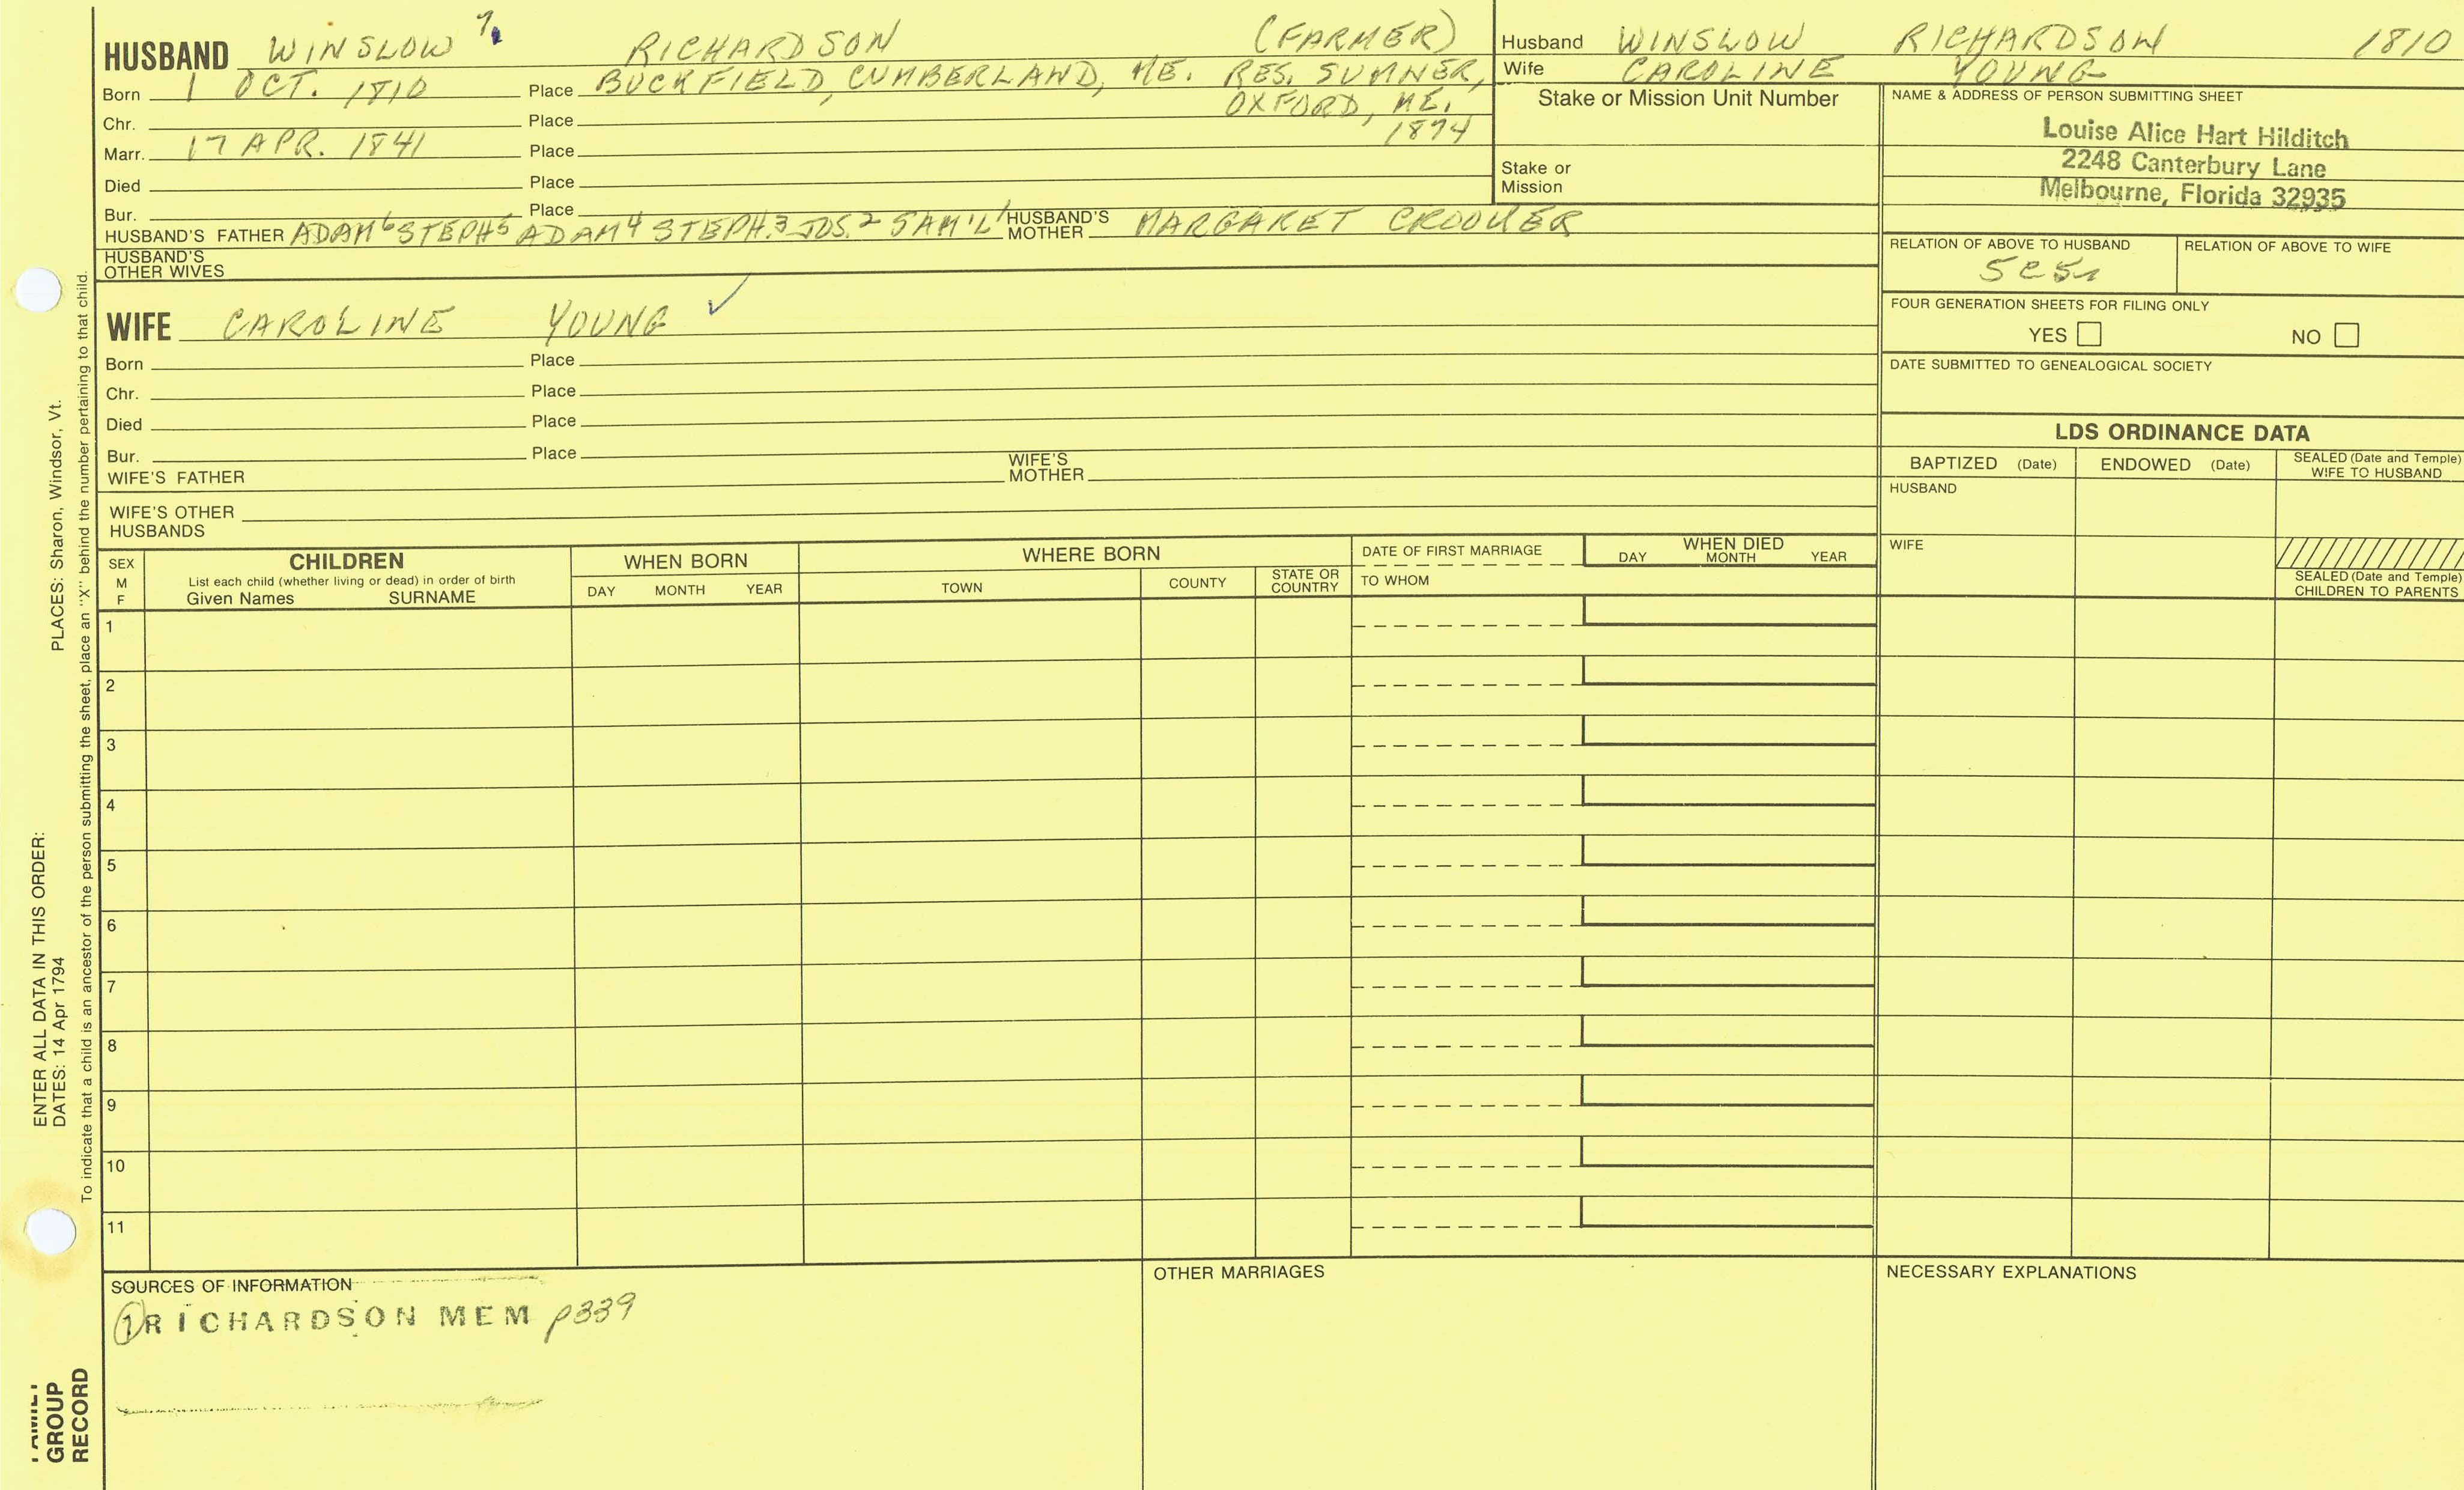 HUSBAND WINSLOW 7 RICHARDSON (FARMER)
Born 1 OCT. 1810 Place BUCKFIELD, CUMBERLAND, ME. RES. SUMNER,
OXFORD, ME.
Chr. Place
1874
Marr. 17 APR. 1841 Place
Died Place
Bur. Place
HUSBAND'S FATHER ADAM6 STEPH5 ADAM4 STEPH.3 JOS.2 SAM'L1 HUSBAND'S MOTHER MARGARET CROOKER
HUSBAND'S
OTHER WIVES
WIFE CAROLINE YOUNG ✓
Born Place
Chr. Place
Died Place
Bur. Place
WIFE'S FATHER WIFE'S MOTHER
WIFE'S OTHER
HUSBANDS
Husband WINSLOW RICHARDSON 1810
Wife CAROLINE YOUNG
Stake or Mission Unit Number
Stake or
Mission
NAME & ADDRESS OF PERSON SUBMITTING SHEET
Louise Alice Hart Hilditch
2248 Canterbury Lane
Melbourne, Florida 32935
RELATION OF ABOVE TO HUSBAND RELATION OF ABOVE TO WIFE
5c5r
FOUR GENERATION SHEETS FOR FILING ONLY
YES NO
DATE SUBMITTED TO GENEALOGICAL SOCIETY
LDS ORDINANCE DATA
BAPTIZED (Date) ENDOWED (Date) SEALED (Date and Temple)
WIFE TO HUSBAND
HUSBAND
WIFE
SEALED (Date and Temple)
CHILDREN TO PARENTS
SEX
M
F
CHILDREN
List each child (whether living or dead) in order of birth
Given Names SURNAME
WHEN BORN
DAY MONTH YEAR
WHERE BORN
TOWN COUNTY STATE OR
COUNTRY
DATE OF FIRST MARRIAGE
TO WHOM
WHEN DIED
DAY MONTH YEAR
1
2
3
4
5
6
7
8
9
10
11
SOURCES OF INFORMATION
1 RICHARDSON MEM p339
OTHER MARRIAGES
NECESSARY EXPLANATIONS
ENTER ALL DATA IN THIS ORDER:
DATES: 14 Apr 1794 PLACES: Sharon, Windsor, Vt.
To indicate that a child is an ancestor of the person submitting the sheet, place an "X" behind the number pertaining to that child.
FAMILY
GROUP
RECORD